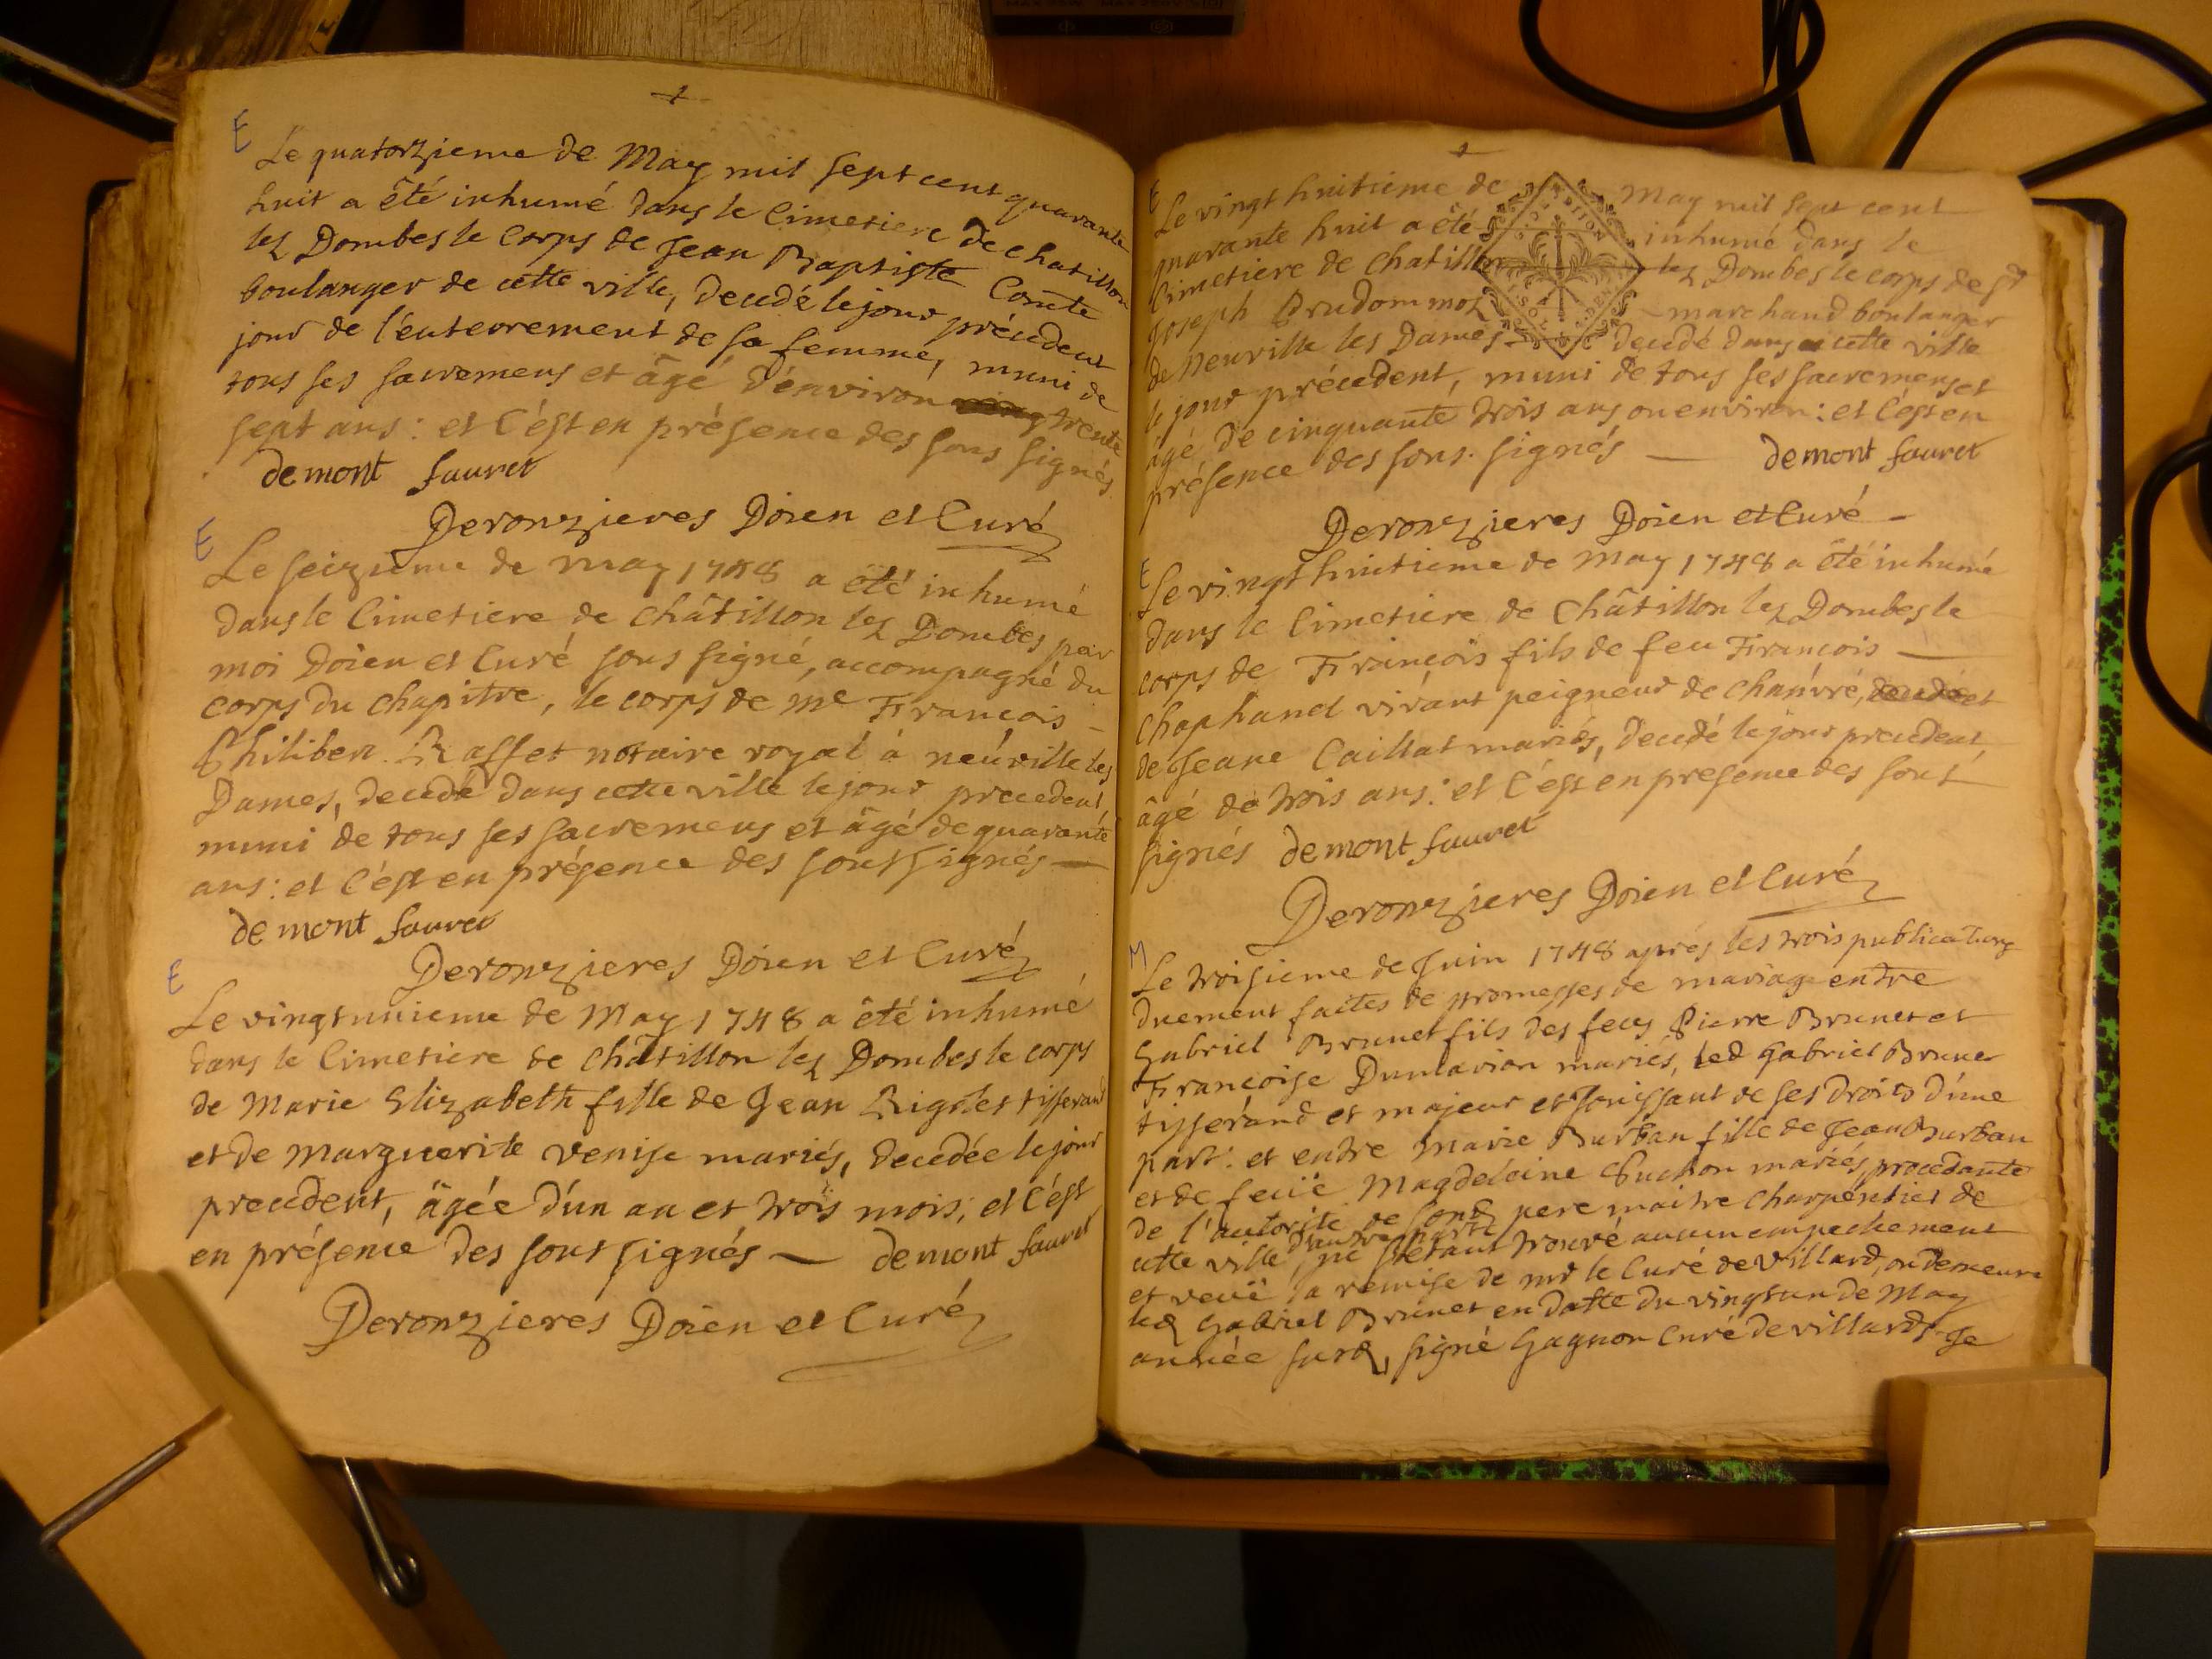 E
Le quatorzieme de May mil sept cent quarante
huit a êté inhumé dans le Cimetiere de chatillon
lez Dombes le corps de Jean Baptiste Comte
boulanger de cette ville, decedé le jour précedent
jour de l'enterrement de sa femme, muni de
tous ses sacremens et âgé d'environ trente
sept ans: et c'est en présence des sous signés
demont fauret
Deronzieres Doien et Curé
E
Le seizieme de may 1748 a êté inhumé
dans le Cimetiere de Châtillon lez Dombes par
moi Doien et Curé sous signé, accompagné du
corps du chapitre, le corps de Me François
Philiber Raffet notaire royal à neuville les
Dames, decedé dans cette ville le jour precedent,
muni de tous ses sacremens et âgé de quarante
ans: et c'est en présence des sous signés
demont fauret
Deronzieres Doien et Curé
E
Le vingt unieme de May 1748 a êté inhumé
dans le Cimetiere de Châtillon lez Dombes le corps
de Marie Elizabeth fille de Jean tisserand
et de Marguerite venise mariés, decedée le jour
precedent, âgée d'un an et trois mois, et c'est
en présence des sous signés demont fauret
Deronzieres Doien et Curé
E
Le vingt huitieme de May mil sept cent
quarante huit a êté inhumé dans le
Cimetiere de Chatillon lez Dombes le corps de Sr
Joseph Prudommoz marchand boulanger
de Neuville les Dames decedé dans cette ville
le jour précedent, muni de tous ses sacremens et
âgé de cinquante trois ans ou environ: et c'est en
présence des sous signés demont fauret
Deronzieres Doien et Curé
E
Le vingt huitieme de May 1748 a êté inhumé
dans le Cimetiere de Châtillon lez Dombes le
corps de François fils de feu François
Chaphanel vivant peigneur de chanvre, et
de Jeane Caillat mariés, decedé le jour precedent,
âgé de trois ans: et c'est en presence des sous
signés demont fauret
Deronzieres Doien et Curé
M
Le troisieme de Juin 1748 aprés les trois publications
duement faites de promesses de mariage entre
Gabriel Brunet fils des feus Pierre Brunet et
Françoise Dumarion mariés, led Gabriel Brunet
tisserand et majeur et jouissant de ses droits d'une
part: et entre Marie Burban fille de Jean Burban
et de feuë Magdeleine Chuchon mariés, procedante
de l'autorite de sond pere maitre charpentier de
cette ville, d'autre part, ne s'étant trouvé aucun empechement
et veuë la remise de mr le Curé de Villard, ou demeure
led Gabriel Brunet en datte du vingt un de May
année susd, signé Gagnon Curé de villards. Je